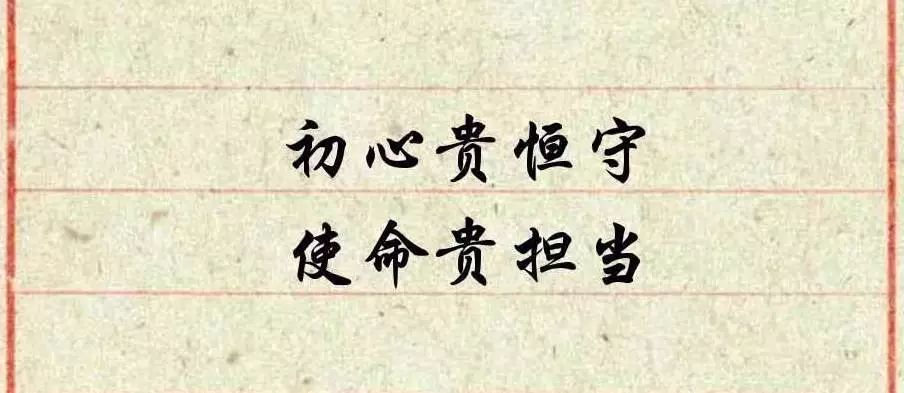 初心贵恒守
使命贵担当